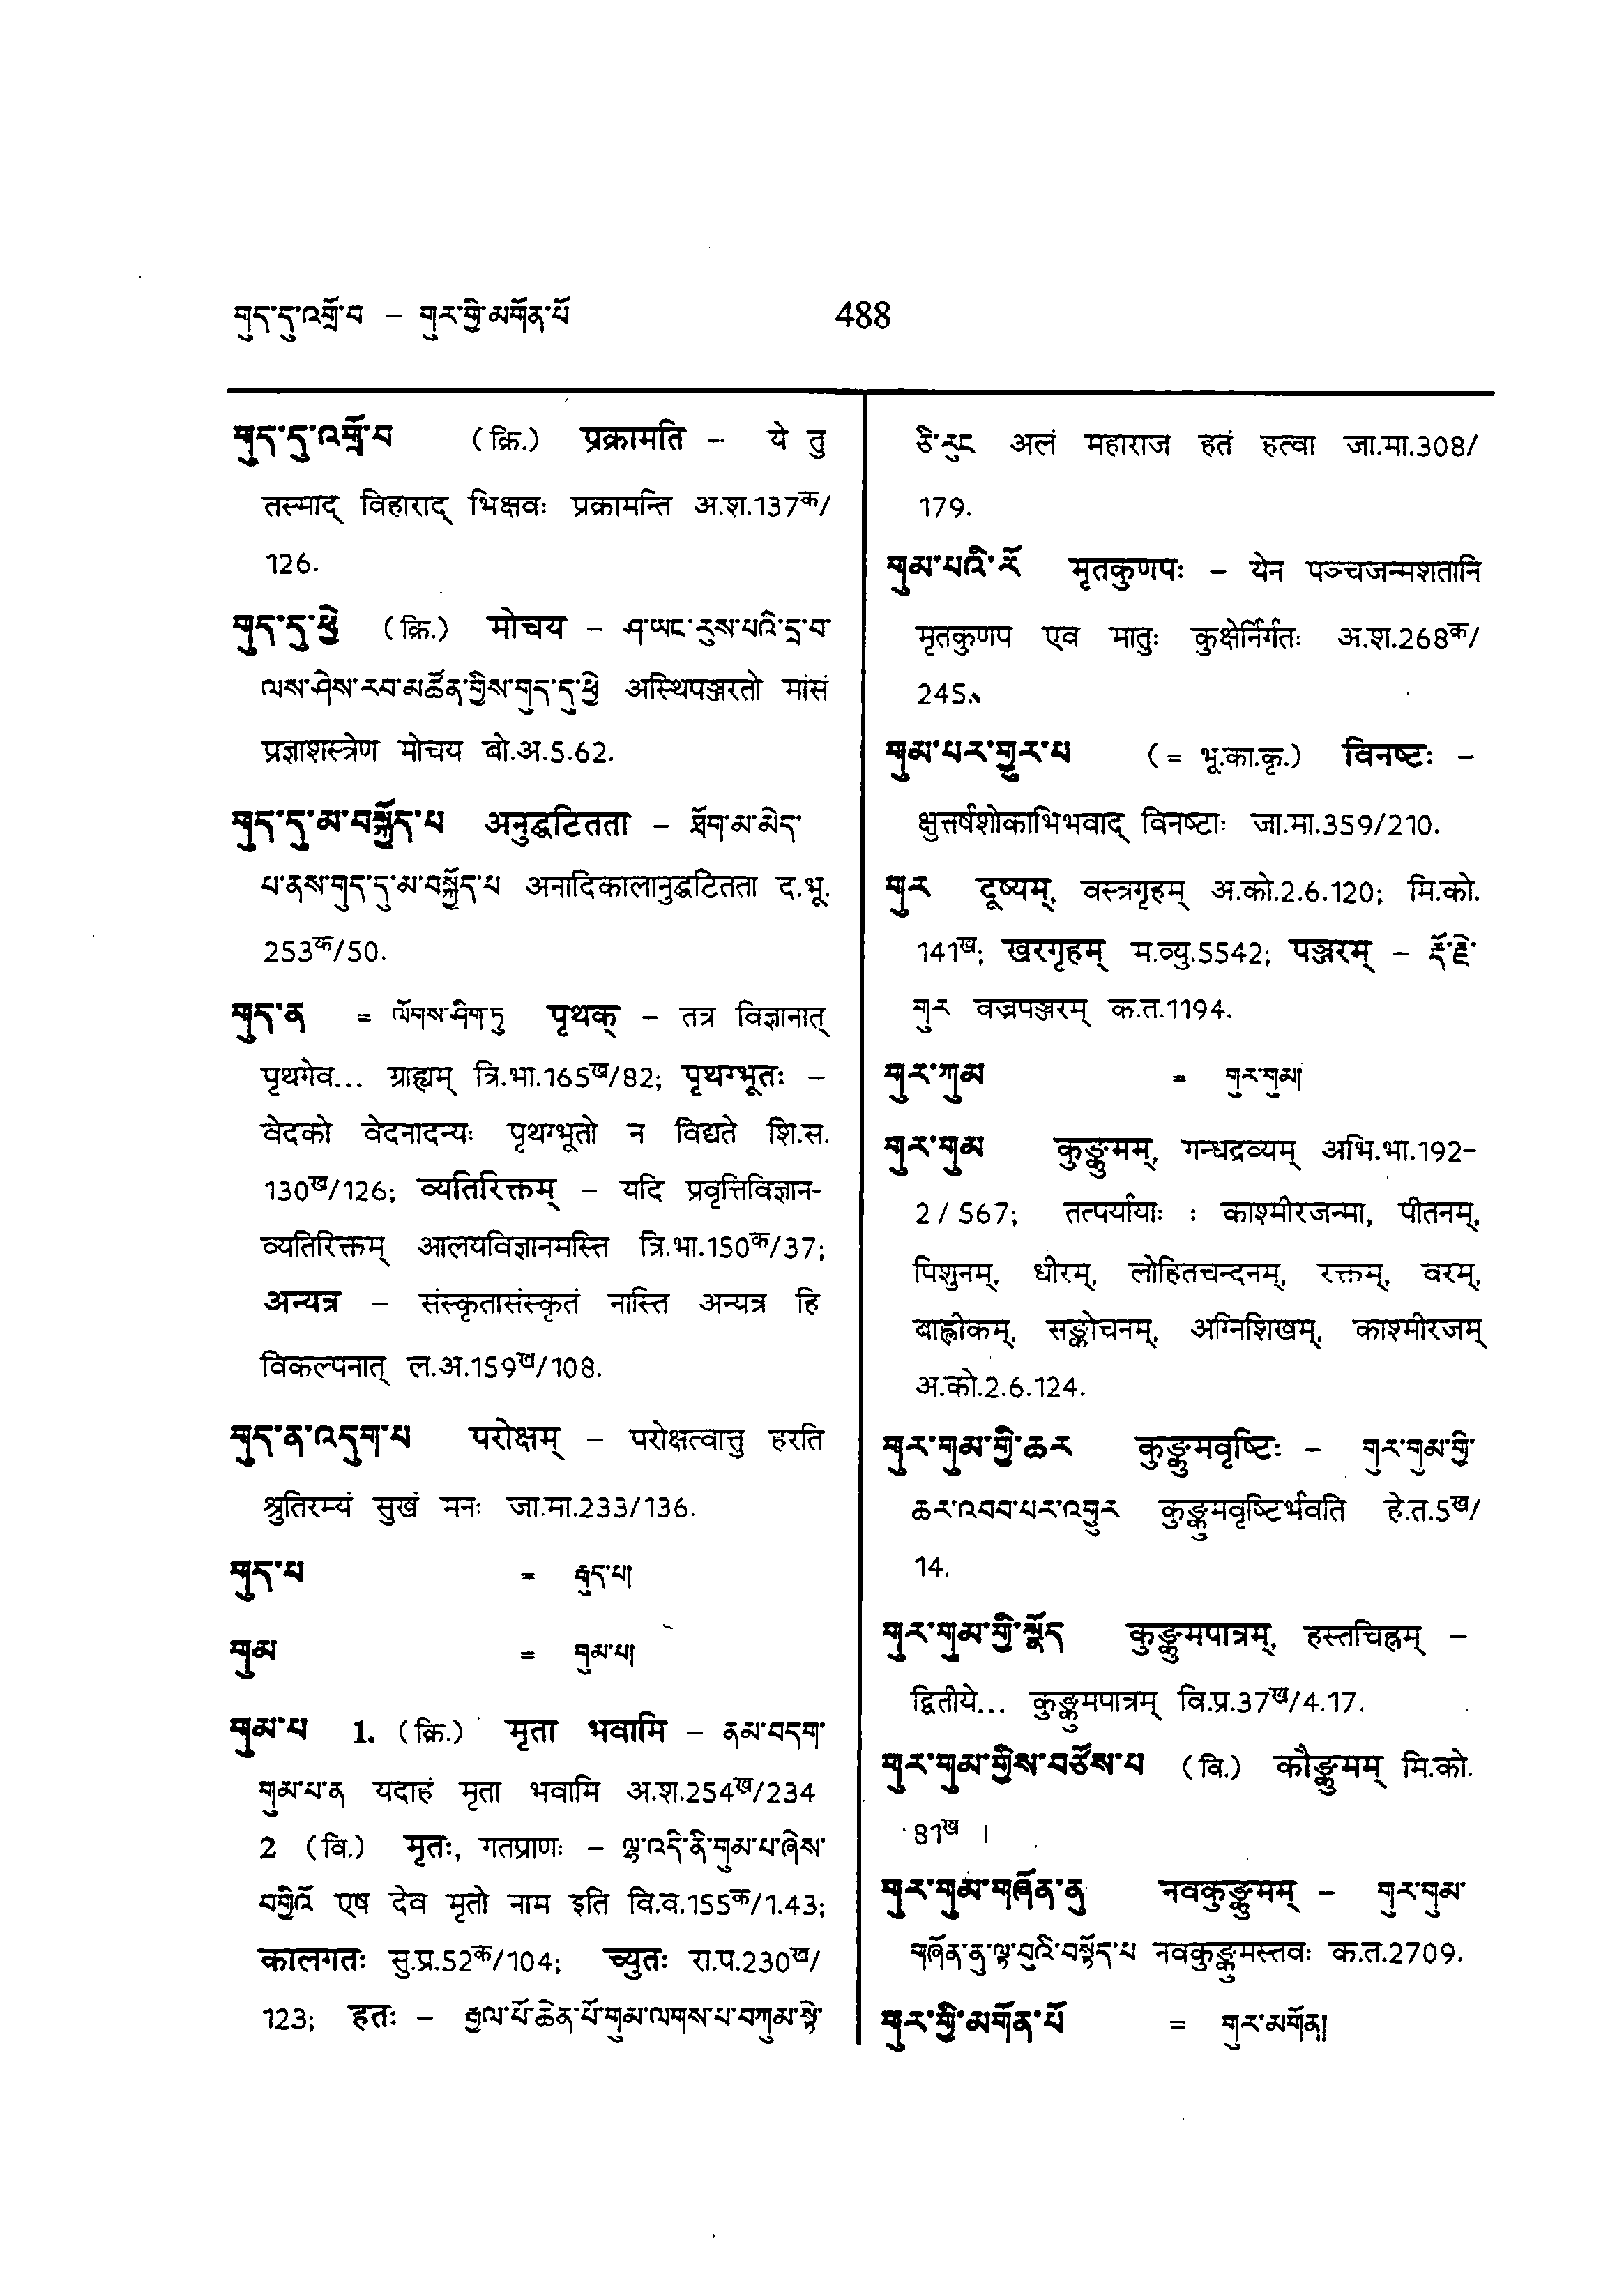 གུད་དུ་འགྲོ་བ – གུར་གྱི་མགོན་པོ 488
གུད་དུ་འགྲོ་བ (क्रि.) प्रक्रामति – ये तु
तस्माद् विहाराद् भिक्षवः प्रक्रामन्ति अ.श.137क/
126.
གུད་དུ་ཕྱེ (क्रि.) मोचय – ཤ་ཡང་རུས་པའི་དྲ་བ་
ལས་ཤེས་རབ་མཚོན་གྱིས་གུད་དུ་ཕྱེ अस्थिपञ्जरतो मांसं
प्रज्ञाशस्त्रेण मोचय बो.अ.5.62.
གུད་དུ་མ་བསྐྱོད་པ अनुद्घटितता – ཐོག་མ་མེད་
པ་ནས་གུད་དུ་མ་བསྐྱོད་པ अनादिकालानुद्घटितता द.भू.
253क/50.
གུད་ན = ལོགས་ཤིག་ཏུ पृथक् – तत्र विज्ञानात्
पृथगेव... ग्राह्यम् त्रि.भा.165ख/82; पृथग्भूतः –
वेदको वेदनादन्यः पृथग्भूतो न विद्यते शि.स.
130ख/126; व्यतिरिक्तम् – यदि प्रवृत्तिविज्ञान-
व्यतिरिक्तम् आलयविज्ञानमस्ति त्रि.भा.150क/37;
अन्यत्र – संस्कृतासंस्कृतं नास्ति अन्यत्र हि
विकल्पनात् ल.अ.159ख/108.
གུད་ན་འདུག་པ परोक्षम् – परोक्षत्वात्तु हरति
श्रुतिरम्यं सुखं मनः जा.मा.233/136.
གུད་པ = རྒུད་པ།
གུམ = གུམ་པ།
གུམ་པ 1. (क्रि.) मृता भवामि – ནམ་བདག་
གུམ་པ་ན यदाहं मृता भवामि अ.श.254ख/234
2 (वि.) मृतः, गतप्राणः – ལྷ་འདི་ནི་གུམ་པ་ཞེས་
བགྱིའོ एष देव मृतो नाम इति वि.व.155क/1.43;
कालगतः सु.प्र.52क/104; च्युतः रा.प.230ख/
123; हतः – རྒྱལ་པོ་ཆེན་པོ་གུམ་ལགས་པ་བཀུམ་སྟེ་
ཅི་རུང अलं महाराज हतं हत्वा जा.मा.308/
179.
གུམ་པའི་རོ मृतकुणपः – येन पञ्चजन्मशतानि
मृतकुणप एव मातुः कुक्षेर्निर्गतः अ.श.268क/
245.
གུམ་པར་གྱུར་པ (= भू.का.कृ.) विनष्टः –
क्षुत्तर्षशोकाभिभवाद् विनष्टाः जा.मा.359/210.
གུར दूष्यम्, वस्त्रगृहम् अ.को.2.6.120; मि.को.
141ख; खरगृहम् म.व्यु.5542; पञ्जरम् – རྡོ་རྗེ་
གུར वज्रपञ्जरम् क.त.1194.
གུར་ཀུམ = གུར་གུམ།
གུར་གུམ कुङ्कुमम्, गन्धद्रव्यम् अभि.भा.192-
2/567; तत्पर्यायाः : काश्मीरजन्मा, पीतनम्,
पिशुनम्, धीरम्, लोहितचन्दनम्, रक्तम्, वरम्,
बाह्लीकम्, सङ्कोचनम्, अग्निशिखम्, काश्मीरजम्
अ.को.2.6.124.
གུར་གུམ་གྱི་ཆར कुङ्कुमवृष्टिः – གུར་གུམ་གྱི་
ཆར་འབབ་པར་འགྱུར कुङ्कुमवृष्टिर्भवति हे.त.5ख/
14.
གུར་གུམ་གྱི་སྣོད कुङ्कुमपात्रम्, हस्तचिह्नम् –
द्वितीये... कुङ्कुमपात्रम् वि.प्र.37ख/4.17.
གུར་གུམ་གྱིས་བཙོས་པ (वि.) कौङ्कुमम् मि.को.
81ख ।
གུར་གུམ་གཞོན་ནུ नवकुङ्कुमम् – གུར་གུམ་
གཞོན་ནུ་ལྟ་བུའི་བསྟོད་པ नवकुङ्कुमस्तवः क.त.2709.
གུར་གྱི་མགོན་པོ = གུར་མགོན།